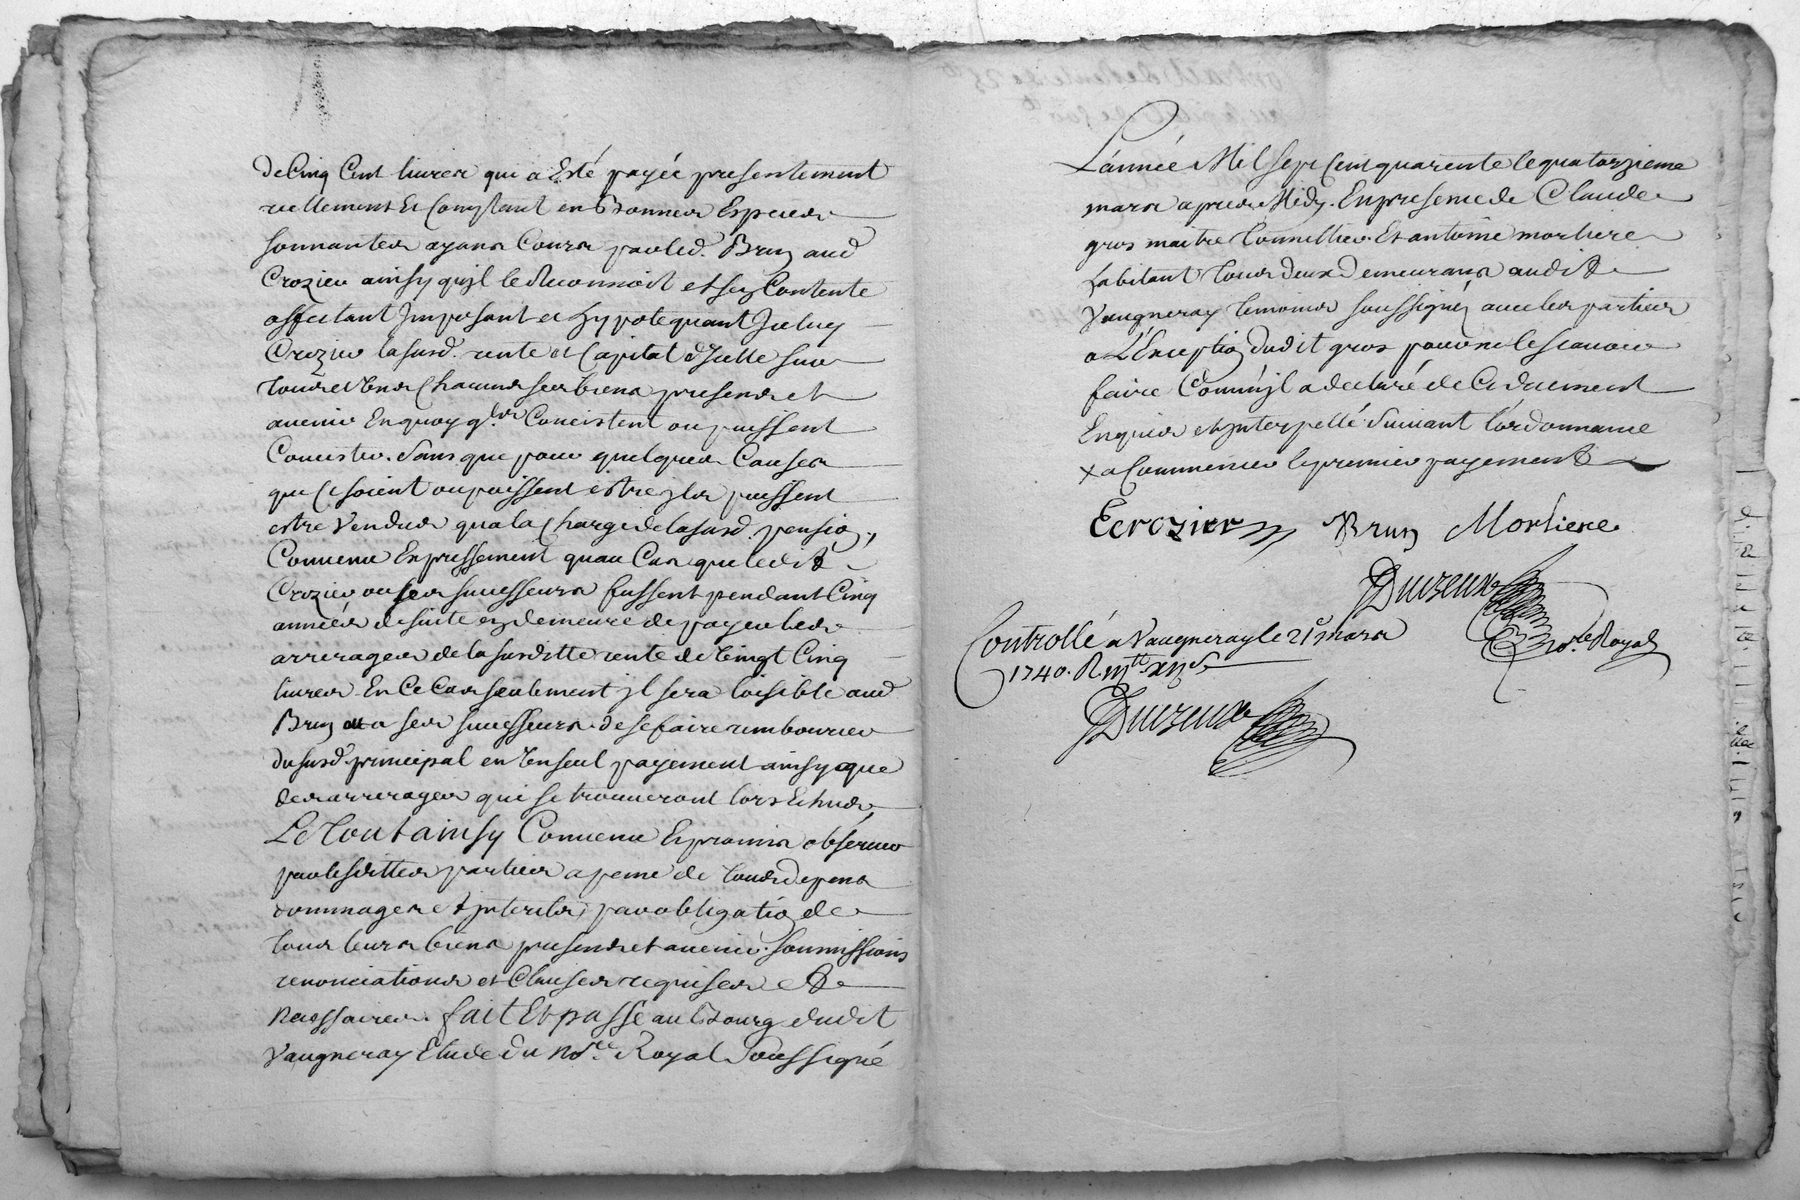 de Cinq Cent livres qui a Esté payée presentement
reellement Et Comptant en Bonnes Especes
sonnantes ayans Cours par led. Brun aud
Crozier ainsy qu'jl le Reconnoit et s'en Contente
affectant Jmposant et hypotequant Jceluy
Crozier lasusd. rente et Capital d'Jcelle sur
tous et Uns Chacuns ses biens presens et
avenir En quoy q.lls Concistent ou puissent
Concister. Sans que pour quelques Causes
que Ce soient ou puissent estre jls puissent
estre Vendus qua la Charge de lasusd. pension,
Convenu Expressement quau Cas que ledit
Crozier ou ses successeurs fussent pendant Cinq
années de suite en demeure de payer les
arrerages de la susditte rente de Vingt Cinq
livres En Ce Cas seulement jl sera loisible aud
Brun ou a ses successeurs de se faire rembourcer
du susd. principal en Un seul payement ainsy que
des arrerages qui se trouveront lors Echus,
Le Tout ainsy Convenu Et promis observer
par lesdittes parties a peine de tous depens
dommages et jnterets par obligation de
tous leurs biens presens et avenir. Soumissions
renonciations et Clauses requises et
Necessaires. fait Et passé au Bourg dudit
Vaugneray Etude du No.re Royal Soussigné
L'année Mil sept Cent quarente le quatorzieme
mars apres Midy. En presence de Claude
gros maitre tonnellier Et antoine morliere
habitant tous deux Demeurans audit
Vaugneray temoins soussignez avec les parties
a L'Exception dudit gros pour ne le scavoir
faire Comm'jl a declaré de Ce duement
Enquis et jnterpellé Suivant l'ordonnance
x a Commencer le premier payement
E crozier Brun Morliere
Duizeux
No.re Royal
Controllé a Vaugneray le 21e mars
1740. R.
Duizeux